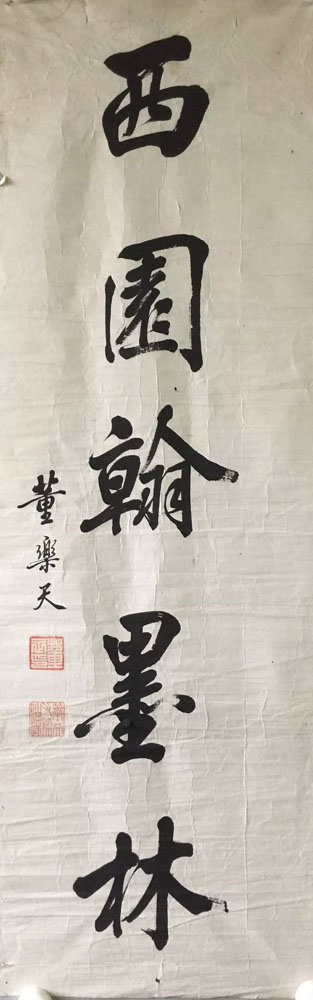 西園翰墨林
董樂天